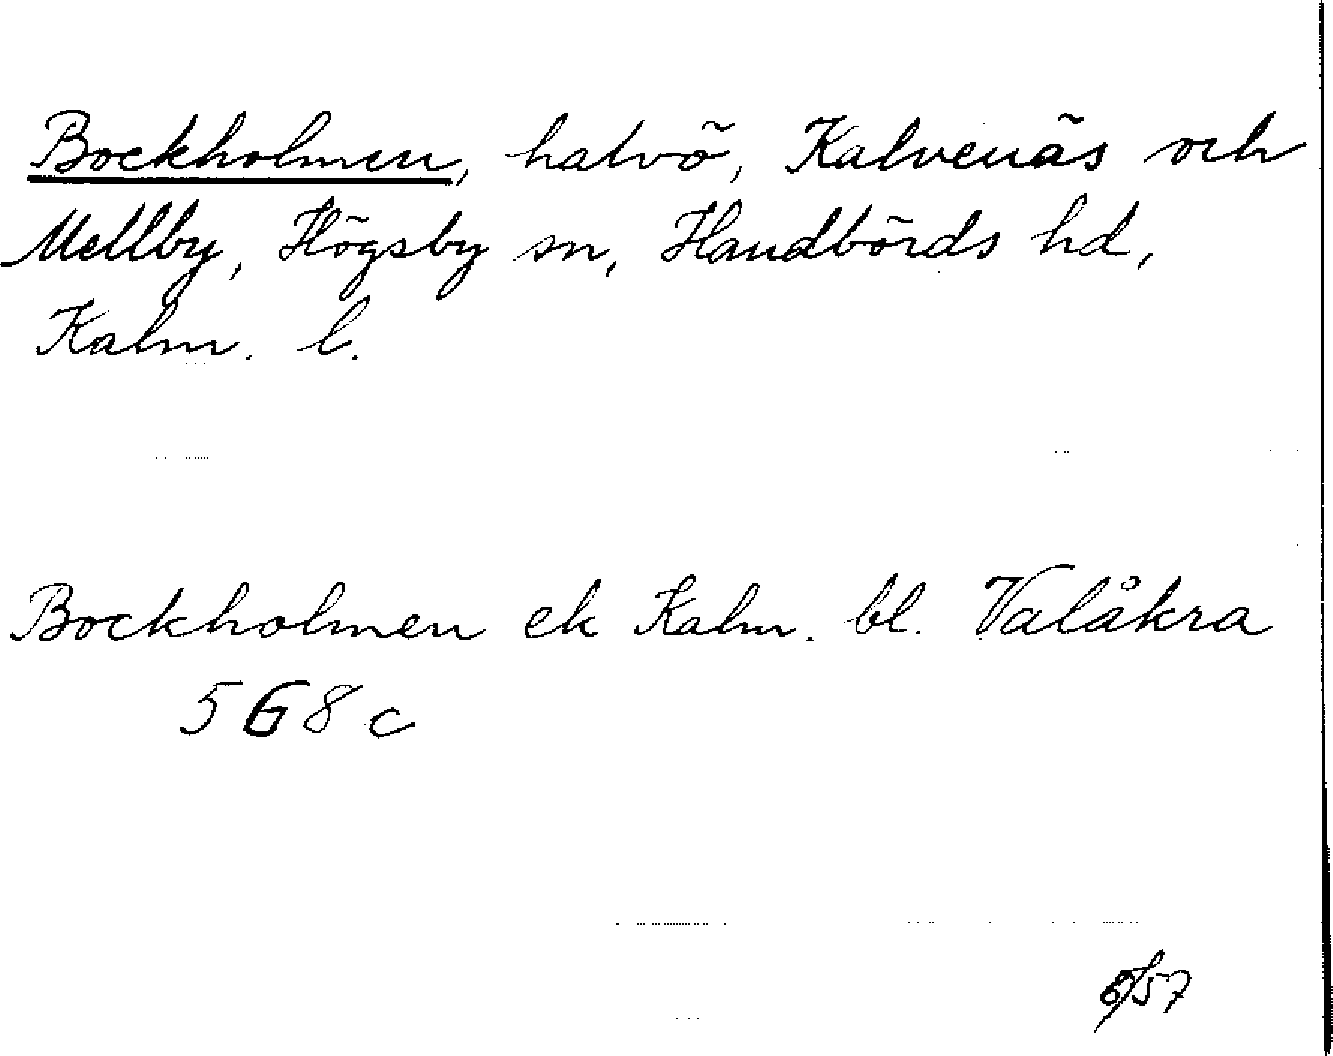 Bockholmen, halvö, Kalvenäs och
Mellby, Högsby sn, Handbörds hd,
Kalm. l.
Bockholmen ek Kalm. bl. Valåkra
568c